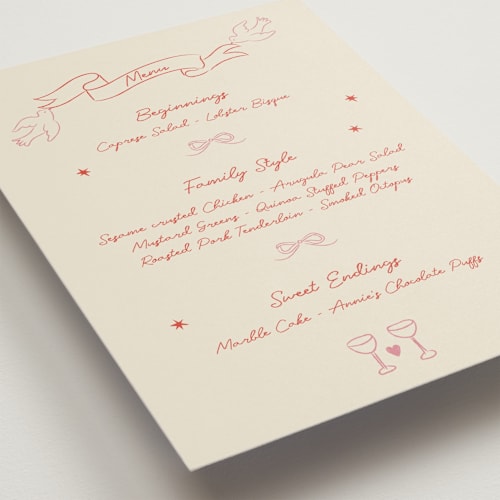 Menu
Beginnings
Caprese Salad - Lobster Bisque
Family Style
Sesame crusted Chicken - Arugula Pear Salad
Mustard Greens - Quinoa Stuffed Peppers
Roasted Pork Tenderloin - Smoked Octopus
Sweet Endings
Marble Cake - Annie's Chocolate Puffs